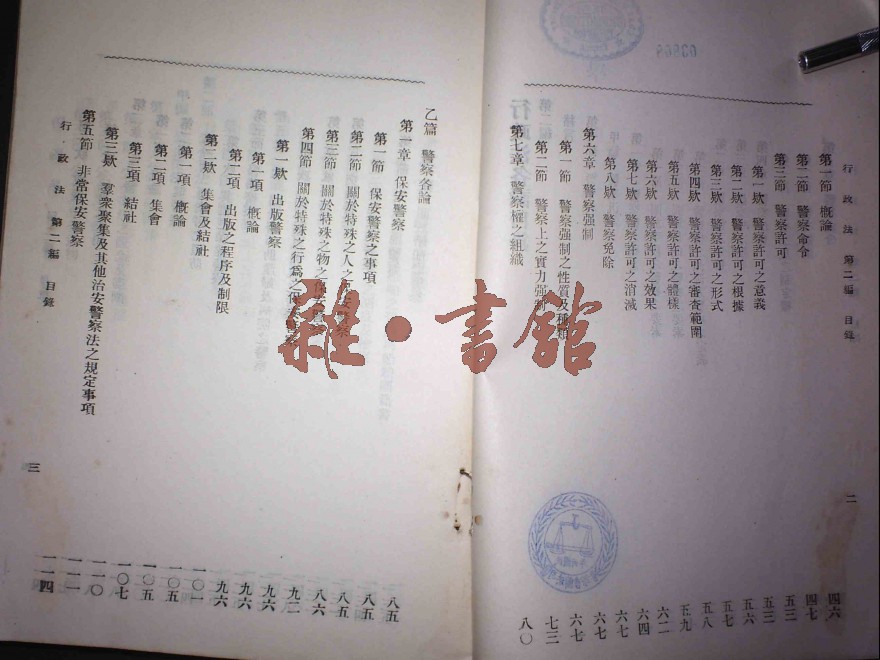 行政法 第二編 目錄 二
第一節 概論 四六
第二節 警察命令 四七
第三節 警察許可 五二
第一欵 警察許可之意義 五三
第二欵 警察許可之根據 五六
第三欵 警察許可之形式 五七
第四欵 警察許可之審查範圍 五八
第五欵 警察許可之體樣 五九
第六欵 警察許可之效果 六二
第七欵 警察許可之消滅 六四
第八欵 警察免除 六七
第六章 警察强制 六七
第一節 警察强制之性質及種類 六七
第二節 警察上之實力强制 七三
第七章 警察權之組織 八〇
乙篇 警察各論 八五
第一章 保安警察 八五
第一節 保安警察之事項 八五
第二節 關於特殊之人之保安警察 八六
第三節 關於特殊之物之保安警察 九二
第四節 關於特殊之行爲之保安警察 九六
第一欵 出版警察 九六
第一項 概論 九六
第二項 出版之程序及制限 一〇一
第二欵 集會及結社 一〇五
第一項 概論 一〇五
第二項 集會 一〇七
第三項 結社 一一〇
第三欵 羣衆聚集及其他治安警察法之規定事項 一一一
第五節 非常保安警察 一一四
行政法 第二編 目錄 三
雜·書館
03868